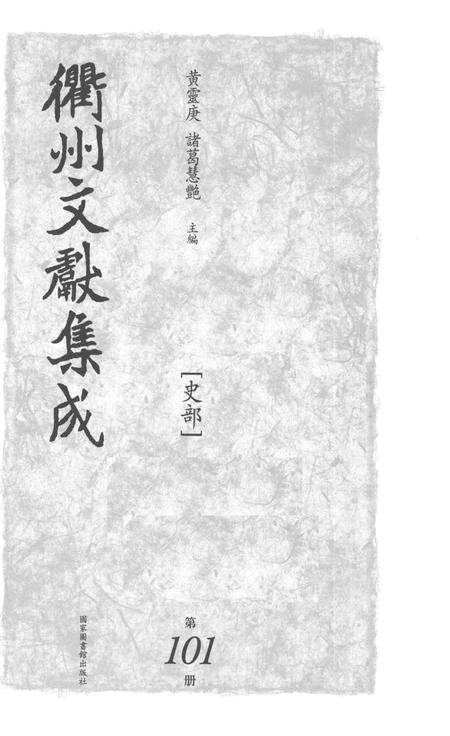 衢州文獻集成
黃靈庚 諸葛慧艷 主編
[史部]
第
101
册
國家圖書館出版社